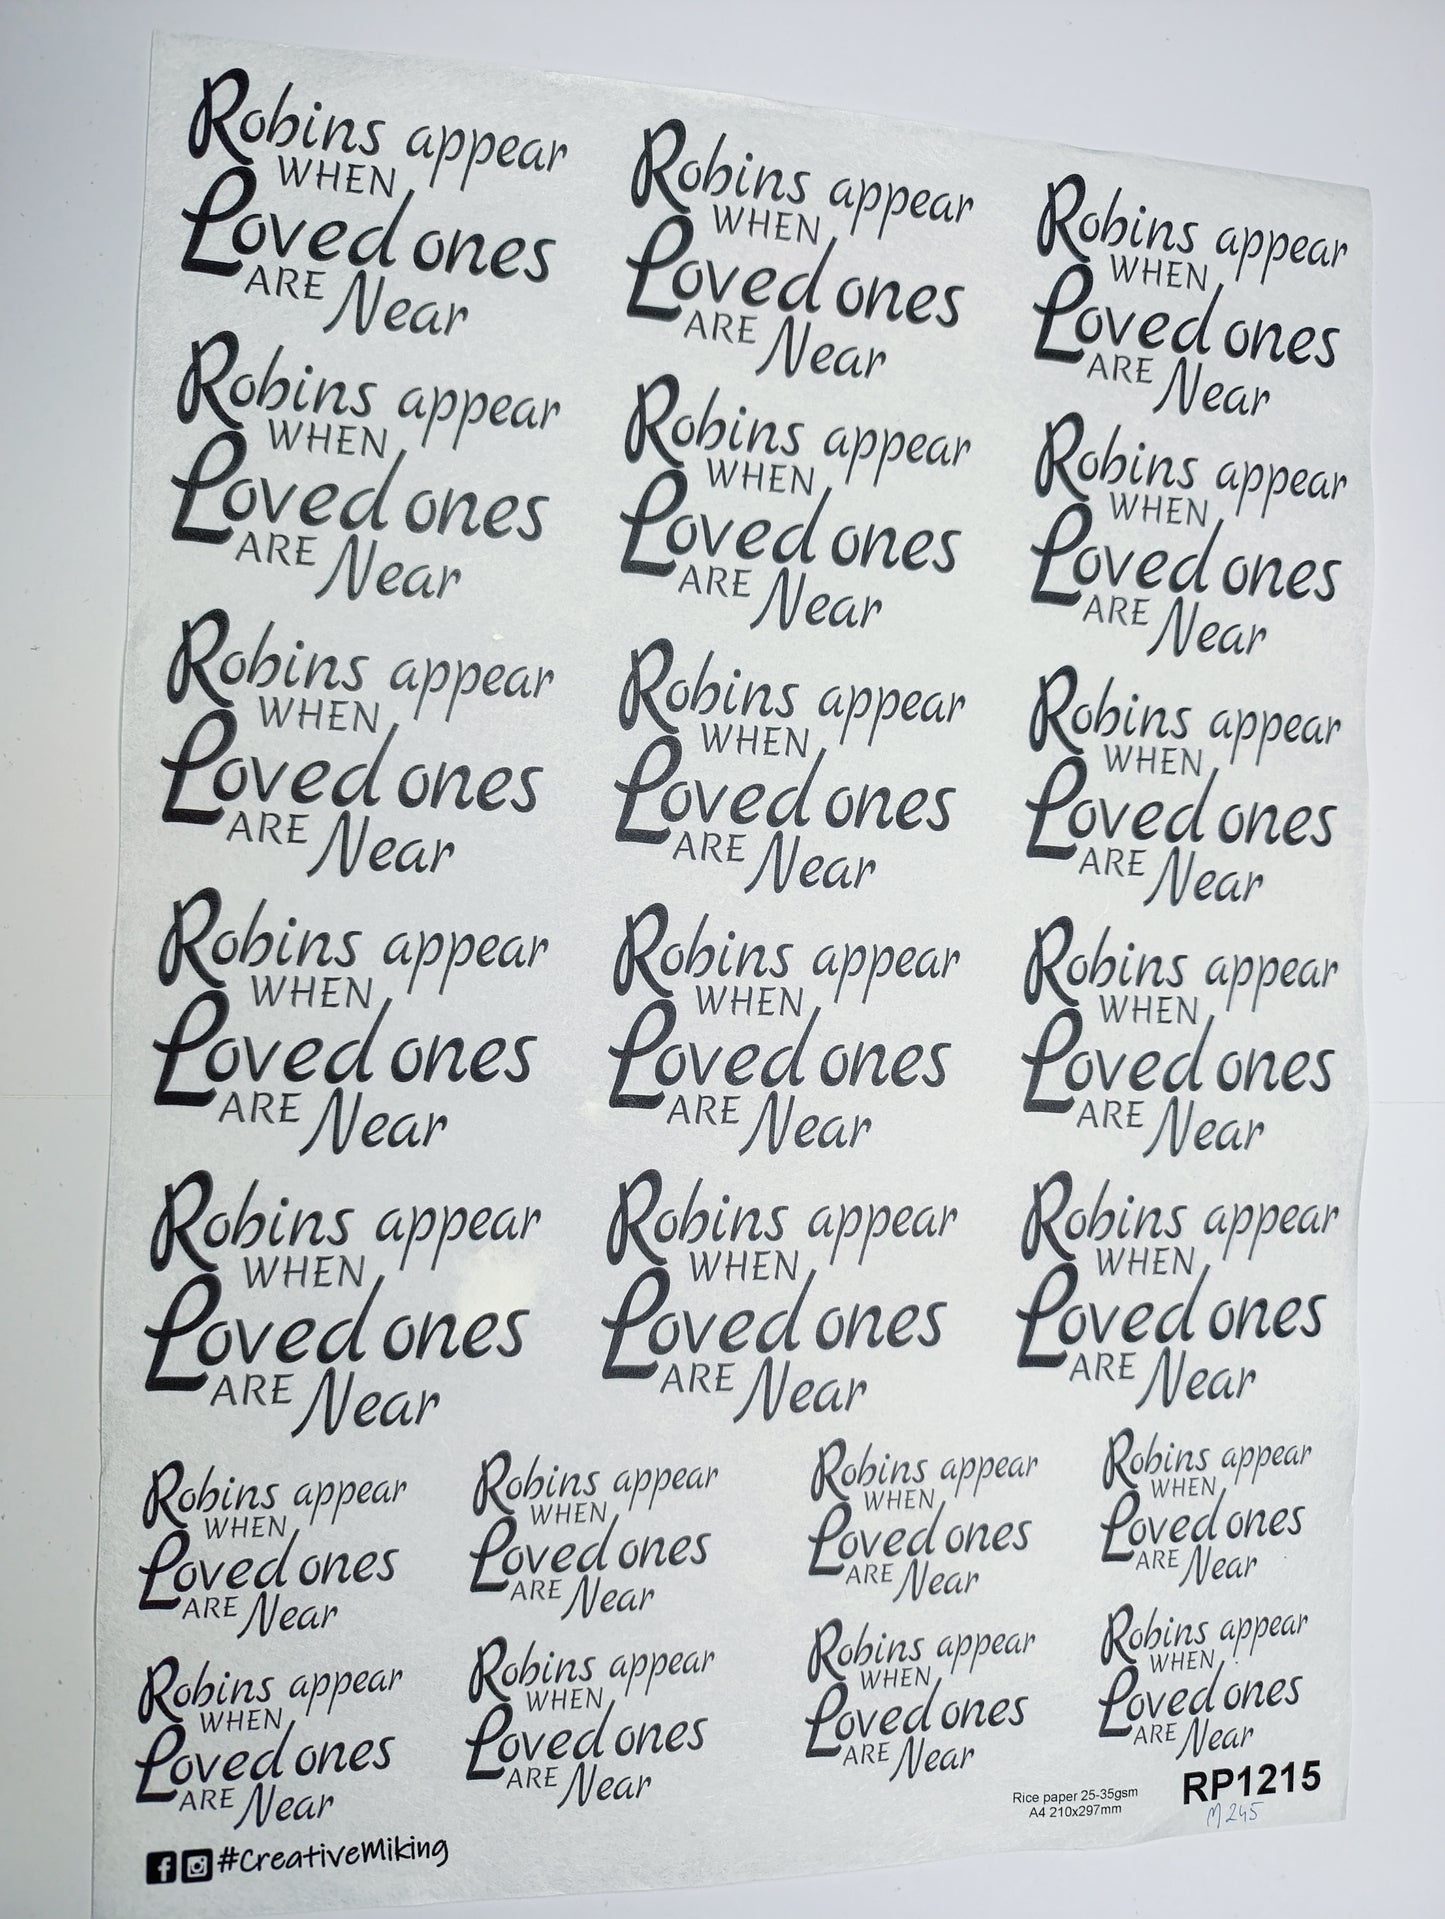 Robins appear
WHEN
Loved ones
ARE Near
Robins appear
WHEN
Loved ones
ARE Near
Robins appear
WHEN
Loved ones
ARE Near
Robins appear
WHEN
Loved ones
ARE Near
Robins appear
WHEN
Loved ones
ARE Near
Robins appear
WHEN
Loved ones
ARE Near
Robins appear
WHEN
Loved ones
ARE Near
Robins appear
WHEN
Loved ones
ARE Near
Robins appear
WHEN
Loved ones
ARE Near
Robins appear
WHEN
Loved ones
ARE Near
Robins appear
WHEN
Loved ones
ARE Near
Robins appear
WHEN
Loved ones
ARE Near
Robins appear
WHEN
Loved ones
ARE Near
Robins appear
WHEN
Loved ones
ARE Near
Robins appear
WHEN
Loved ones
ARE Near
Robins appear
WHEN
Loved ones
ARE Near
Robins appear
WHEN
Loved ones
ARE Near
Robins appear
WHEN
Loved ones
ARE Near
Robins appear
WHEN
Loved ones
ARE Near
Robins appear
WHEN
Loved ones
ARE Near
Robins appear
WHEN
Loved ones
ARE Near
Robins appear
WHEN
Loved ones
ARE Near
Robins appear
WHEN
Loved ones
ARE Near
Rice paper 25-35gsm
A4 210x297mm
RP1215
M245
#CreativeMiking